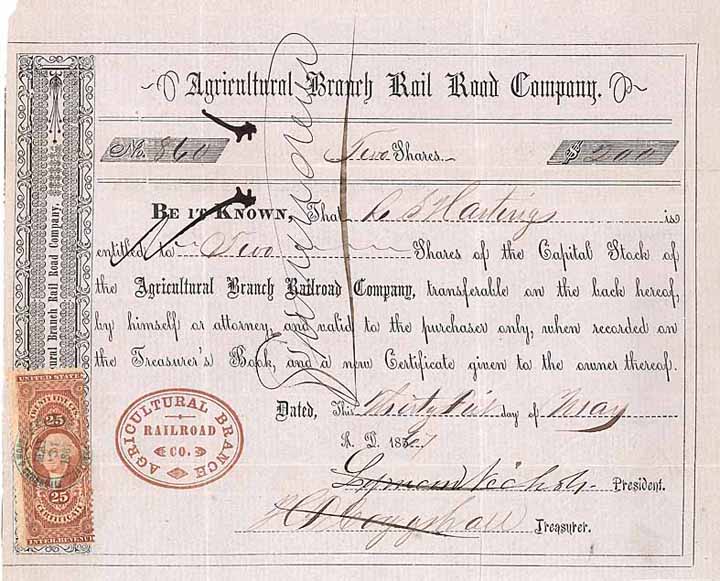 Agricultural Branch Rail Road Company.
No. 860 Two Shares. $ 200
BE IT KNOWN, That is
entitled to Two Shares of the Capital Stock of
the Agricultural Branch Railroad Company, transferable on the back hereof,
by himself or attorney, and valid to the purchaser only, when recorded on
the Treasurer's Book, and a new Certificate given to the owner thereof.
Dated, This Thirty first day of May
A. D. 186
Lyman Nichols President.
Treasurer.
AGRICULTURAL BRANCH
RAILROAD
CO.
ural Branch Rail Road Company,
UNITED STATES
25
25
CERTIFICATE
INTER. REVENUE